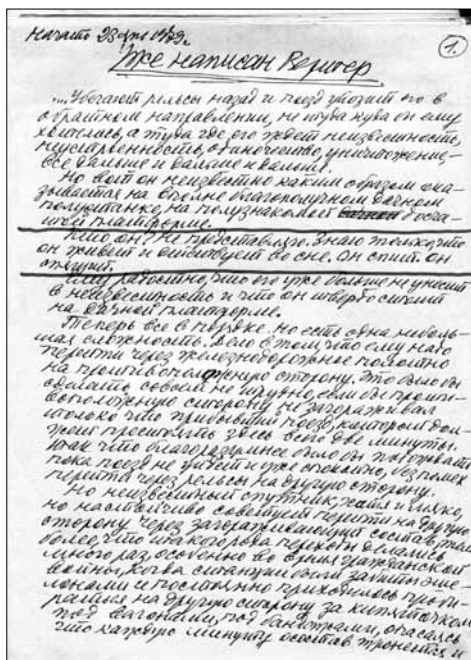 Начато 23 1979г.
1.
Уже написан Вертер
....Убегают рельсы назад и поезд увозит его в
обратном направлении, не туда куда он ему
хотелось, а туда где его ждет неизвестность,
неустроенность, одиночество, уничтожение –
все дальше и дальше и дальше.
Но вот он неизвестно каким образом ока-
зывается на вполне благополучном дачном
полустанке, на полузнакомой доща-
той платформе.
Кто он? Не представляю. Знаю только, что
он живет и действует во сне. Он спит. Он
спящий.
Ему радостно, что его уже больше не уносит
в неизвестность и что он твердо стоит
на дачной платформе.
Теперь все в порядке. Но есть одна неболь-
шая сложность. Дело в том, что ему надо
перейти через железнодорожное полотно
на противоположную сторону. Это было бы
сделать совсем не трудно, если бы проти-
воположную сторону не загораживал
только что прибывший поезд, который дол-
жен простоять здесь всего две минуты.
Так что благоразумнее было бы подождать
пока поезд не уйдет и уже спокойно, без помех
перейти через рельсы на другую сторону.
Но неизвестный спутник хотя и мягко,
но настойчиво советует перейти на другую
сторону через загораживающий состав, тем
более, что такого рода переходы делались
много раз, особенно во время гражданской
войны, когда станции были забиты эше-
лонами и постоянно приходилось проби-
раться на другую сторону за кипяточком
под вагонами, под бандажами, опасаясь
что каждую минуту состав тронется и